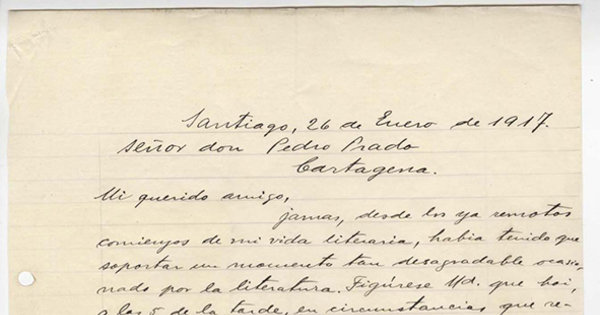 Santiago, 26 de Enero de 1917.
Señor don Pedro Prado
Cartagena.
Mi querido amigo,
jamas, desde los ya remotos
comienzos de mi vida literaria, habia tenido que
soportar un momento tan desagradable ocasio-
nado por la literatura. Figúrese Ud. que hoi,
a las 5 de la tarde, en circunstancias que re-